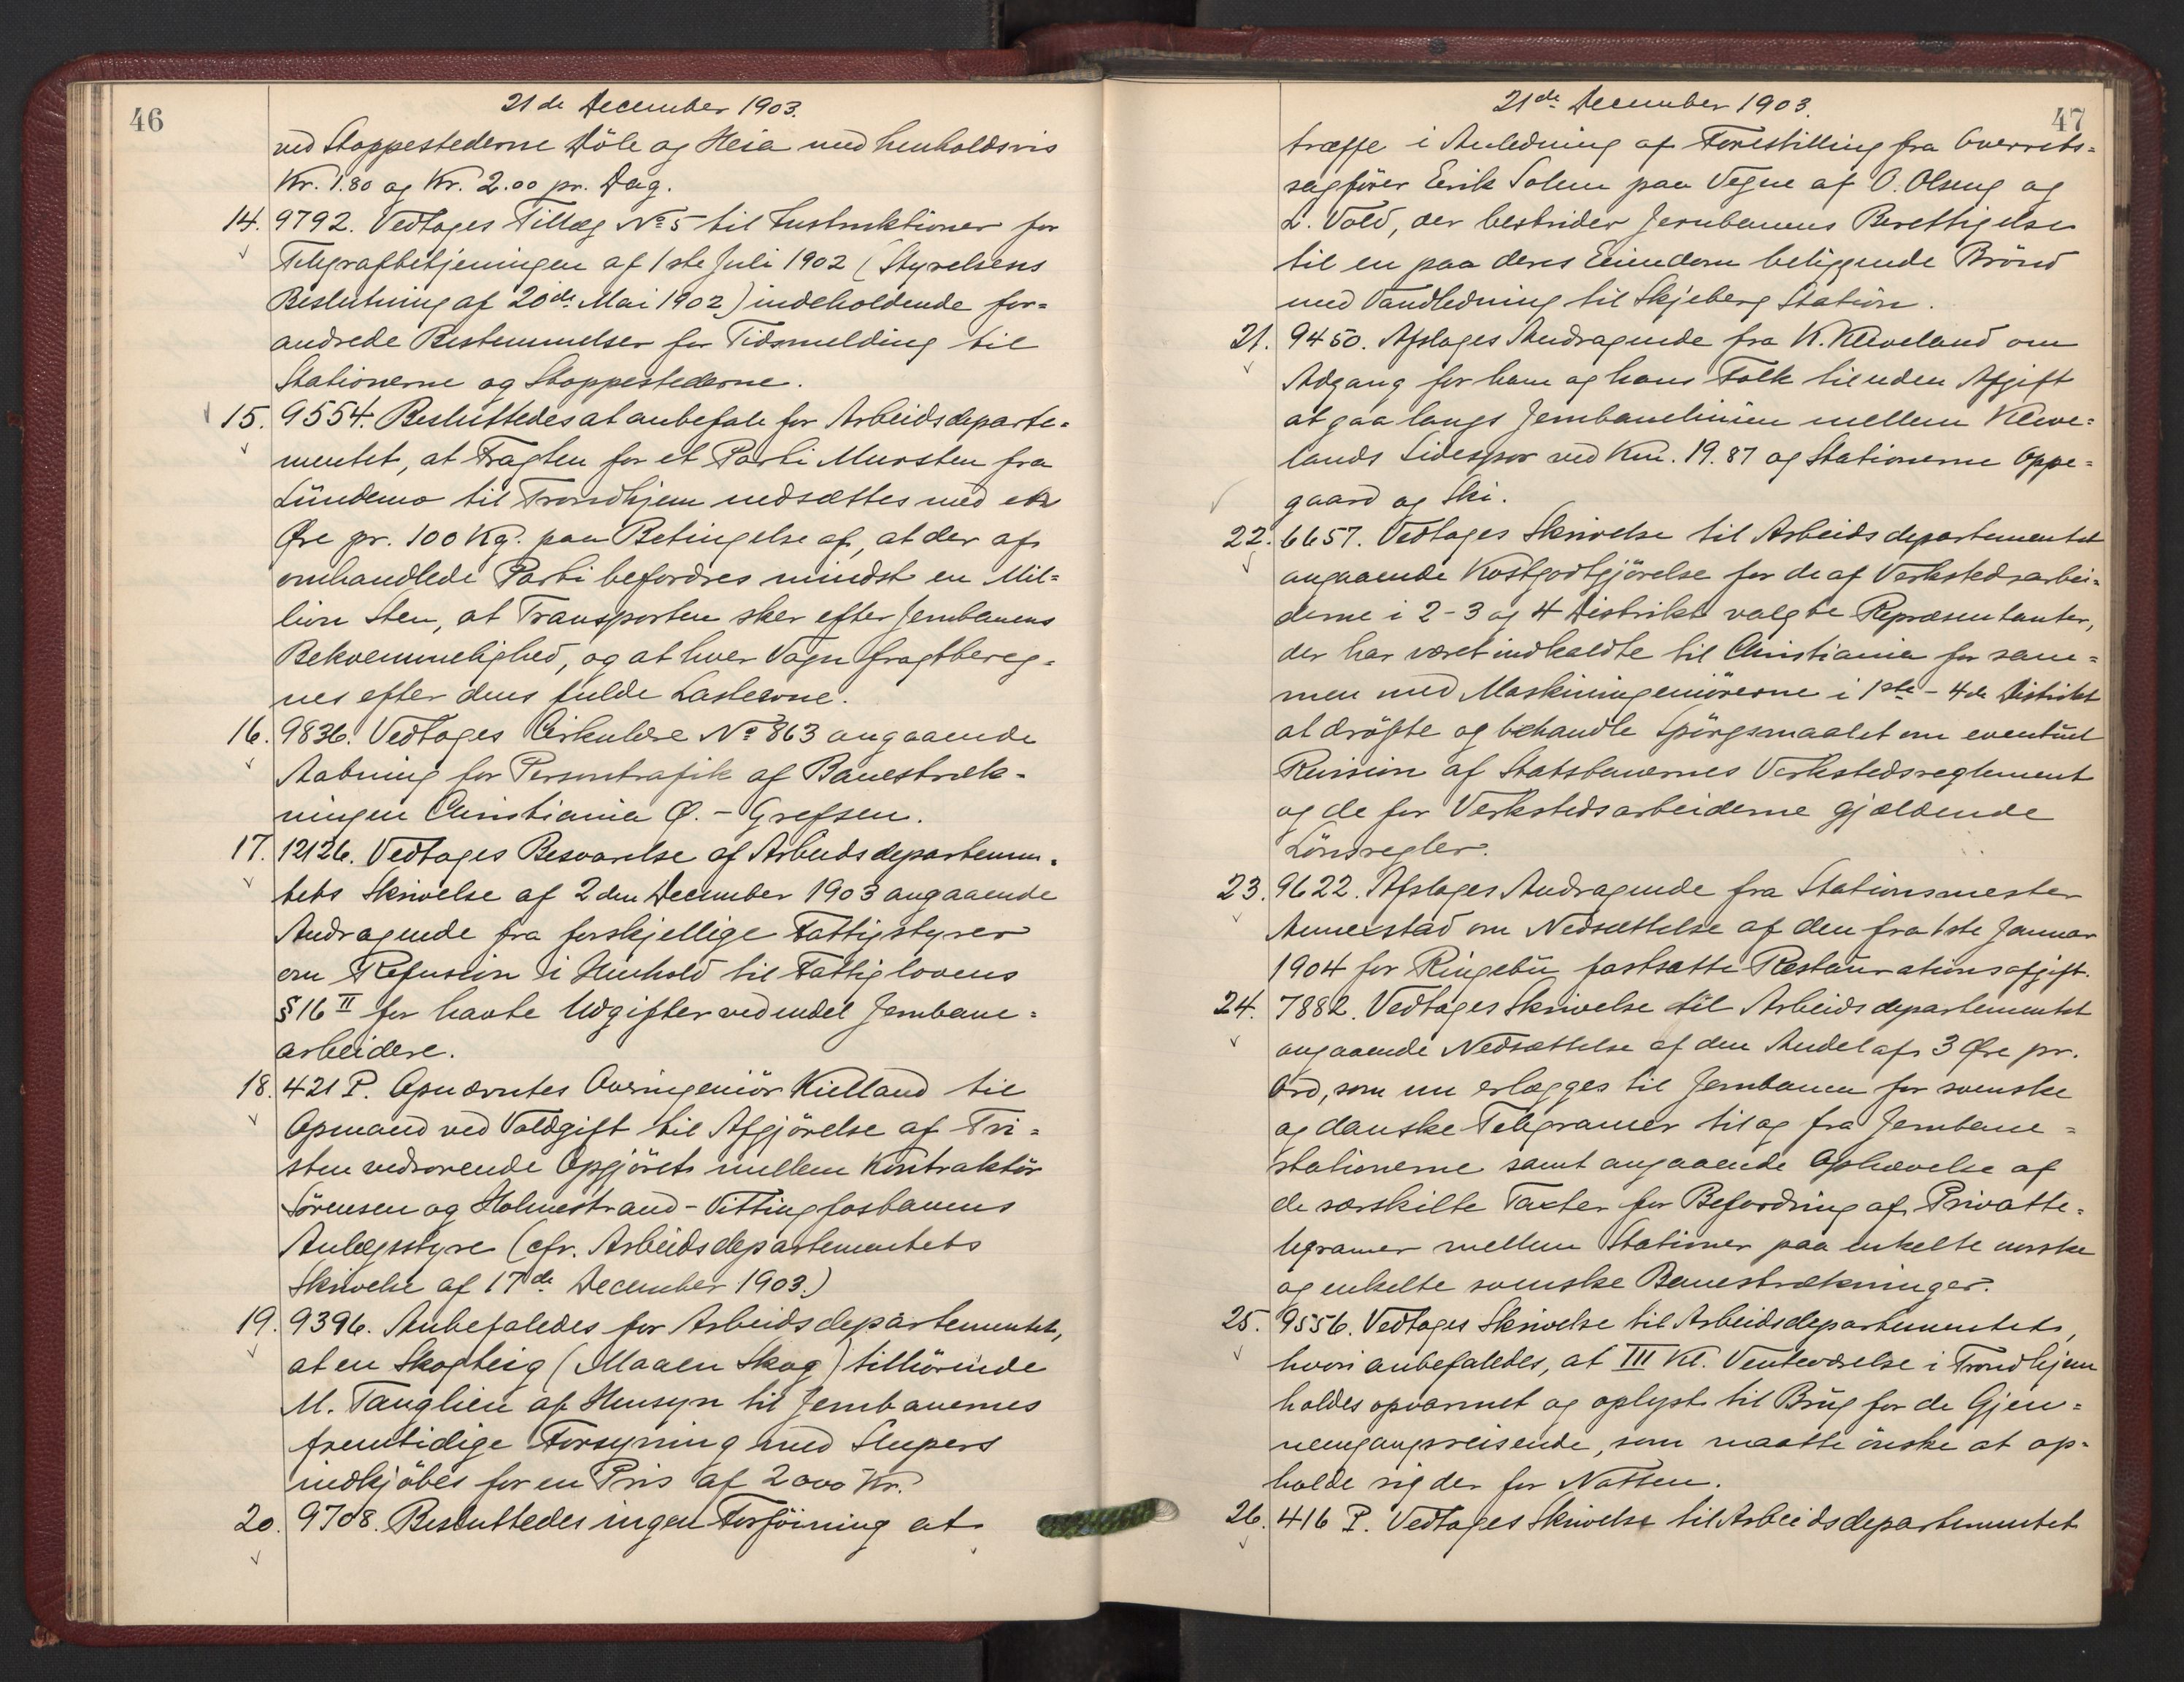 46
21de December 1903.
ved Stoppestederne Döle og Heia med henholdsvis
Kr. 1.80 og Kr. 2.00 pr. Dag.
14. 9792. Vedtoges Tillæg No 5 til Instruktioner for
Telegrafbetjeningen af 1ste Juli 1902 (Styrelsens
Beslutning af 20de Mai 1902) indeholdende for=
andrede Bestemmelser for Tidsmelding til
Stationerne og Stoppestederne.
15. 9554. Besluttedes at anbefale for Arbeidsdeparte=
mentet, at Fragten for et Parti Mursten fra
Lundemo til Trondhjem nedsættes med en
Øre pr. 100 Kg. paa Betingelse af, at der af
omhandlede Parti befordres mindst en Mil=
lion Sten, at Transporten sker efter Jernbanens
Bekvemmelighed, og at hver Vogn fragtbereg=
nes efter dens fulde Lasteevne.
16. 9836. Vedtoges Cirkulære No 863 angaaende
Aabning for Persontrafik af Banestræk=
ningen Christiania Ø. - Grefsen.
17. 12126. Vedtoges Besvarelse af Arbeidsdepartemen=
tets Skrivelse af 2den December 1903 angaaende
Andragende fra forskjellige Fattigstyrer
om Refusion i Henhold til Fattiglovens
§ 16 II for havte Udgifter ved endel Jernbane=
arbeidere.
18. 421 P. Opnævntes Overingeniör Kielland til
Opmand ved Voldgift til Afgjörelse af Tvi=
sten vedrörende Opgjöret mellem Kontraktör
Sörensen og Holmestrand - Vittingfosbanens
Anlægsstyre (cfr. Arbeidsdepartementets
Skrivelse af 17de December 1903.)
19. 9396. Anbefaledes for Arbeidsdepartementet,
at en Skogteig (Maaen Skog) tilhörende
M. Tanglien af Hensyn til Jernbanernes
fremtidige Forsyning med Sleepers
indkjöbes for en Pris af 2000 Kr.
20. 9708. Besluttedes ingen Forföining at
47
21de December 1903.
træffe i Anledning af Forestilling fra Overrets=
sagförer Eerik Solem paa Vegne af O. Olseng og
L. Vold, der bestrider Jernbanens Berettigelse
til en paa deres Eiendom beliggende Brönd
med Vandledning til Skjeberg Station.
21. 9450. Afsloges Andragende fra K. Kleveland om
Adgang for ham og hans Folk til uden Afgift
at gaa langs Jernbanelinien mellem Kleve=
lands Sidespor ved Km. 19.87 og Stationerne Oppe=
gaard og Ski.
22. 6657. Vedtoges Skrivelse til Arbeidsdepartementet
angaaende Kostgodtgjörelse for de af Verkstedsarbei=
derne i 2-3 og 4 Distrikt valgte Repræsentanter,
der har været indkaldte til Christiania for sam=
men med Maskiningeniörerne i 1ste - 4de Distrikt
at dröfte og behandle Spörgsmaalet om eventuel
Revision af Statsbanernes Verkstedsreglement
og de for Verkstedsarbeiderne gjældende
Lönsregler.
23. 9622. Afsloges Andragende fra Stationsmester
Annerstad om Nedsættelse af den fra 1ste Januar
1904 for Ringebu fastsatte Restaurationsafgift.
24. 7882. Vedtoges Skrivelse til Arbeidsdepartementet
angaaende Nedsættelse af den Andel af 3 Øre pr.
Ord, som nu erlægges til Jernbanen for svenske
og danske Telegramer til og fra Jernbane=
stationerne samt angaaende Ophævelse af
de særskilte Taxter for Befordring af Privatte=
legramer mellem Stationer paa enkelte norske
og enkelte svenske Banestrækninger.
25. 9556. Vedtoges Skrivelse til Arbeidsdepartementet,
hvori anbefaledes, at III Kl. Venteværelse i Trondhjem
holdes opvarmet og oplyst til Brug for de Gjen=
nemgangsreisende, som maatte önske at op=
holde sig der for Natten.
26. 416 P. Vedtoges Skrivelse til Arbeidsdepartementet